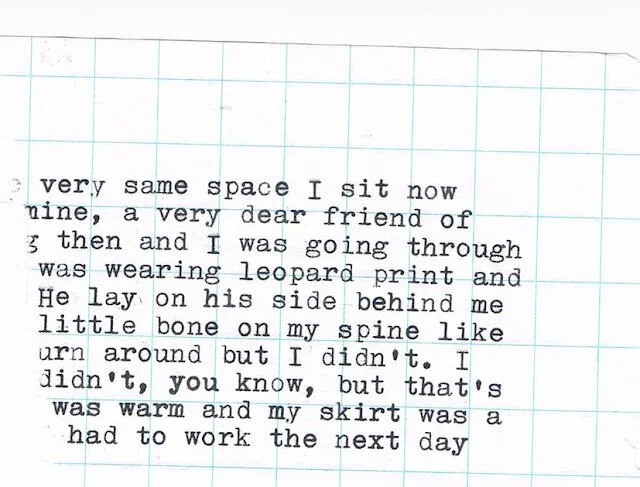 very same space I sit now
nine, a very dear friend of
g then and I was going through
was wearing leopard print and
He lay on his side behind me
little bone on my spine like
urn around but I didn't. I
didn't, you know, but that's
was warm and my skirt was a
had to work the next day